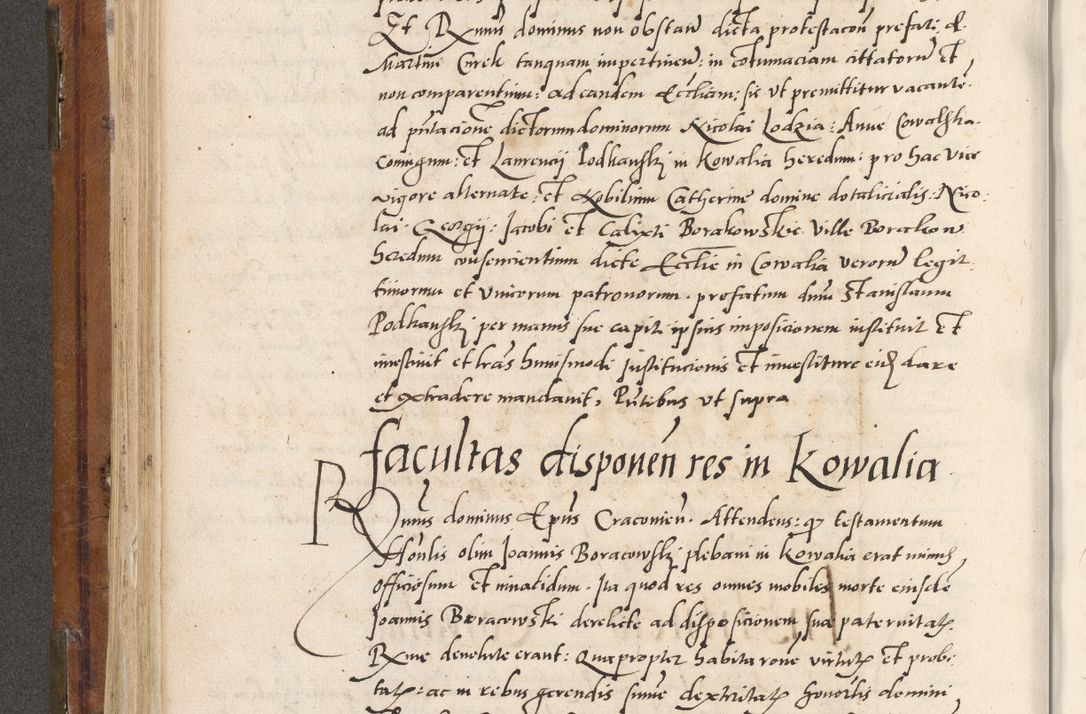 Et Rmus dominus non obstan dicta protestacon prefati d.
Martini Curek tanquam impertinen: in cotumaciam cittatoru et
non comparentium: ad eandem Eccliam: sic ut premittitur vacante
ad pntacione dictorum dominorum Nicolai Lodzia: Anne Cowalska
Coniugum: et Laurencij Podkanski in Kowalia heredum: pro hac vice
vigore alternate: et Nobilium Catherine domine dotalicialis: Nico:
lai: Georgij: Jacobi et Calixti Borakowskie Ville Borakow
heredum consencientium dicte Ecclie in Cowalia veroru legit
timorum et Unicorum patronorum. prefatum dnum Stanislaum
Podkanski per manus sue capiti ipsius imposicionem instituit et
investivit et lras huiusmodi Institucionis et investiture eid dare
et extradere mandavit, Pntibus ut supra
facultas disponen res in Kowalia
Rmus dominus Epus Cracovien. Attendens: q testamentum
Honlis olim Joannis Boracowski plebani in Kowalia erat minus
officiosum et invalidum. Ita quod res omnes mobiles morte eiusde
Joannis Boracowski derelicte ad disposicionem sua paternitatis
Rme devolute erant: Quapropter habita rone virtutis et probi
tatis: ac in rebus gerendis sume dexteritatis honorlis domini